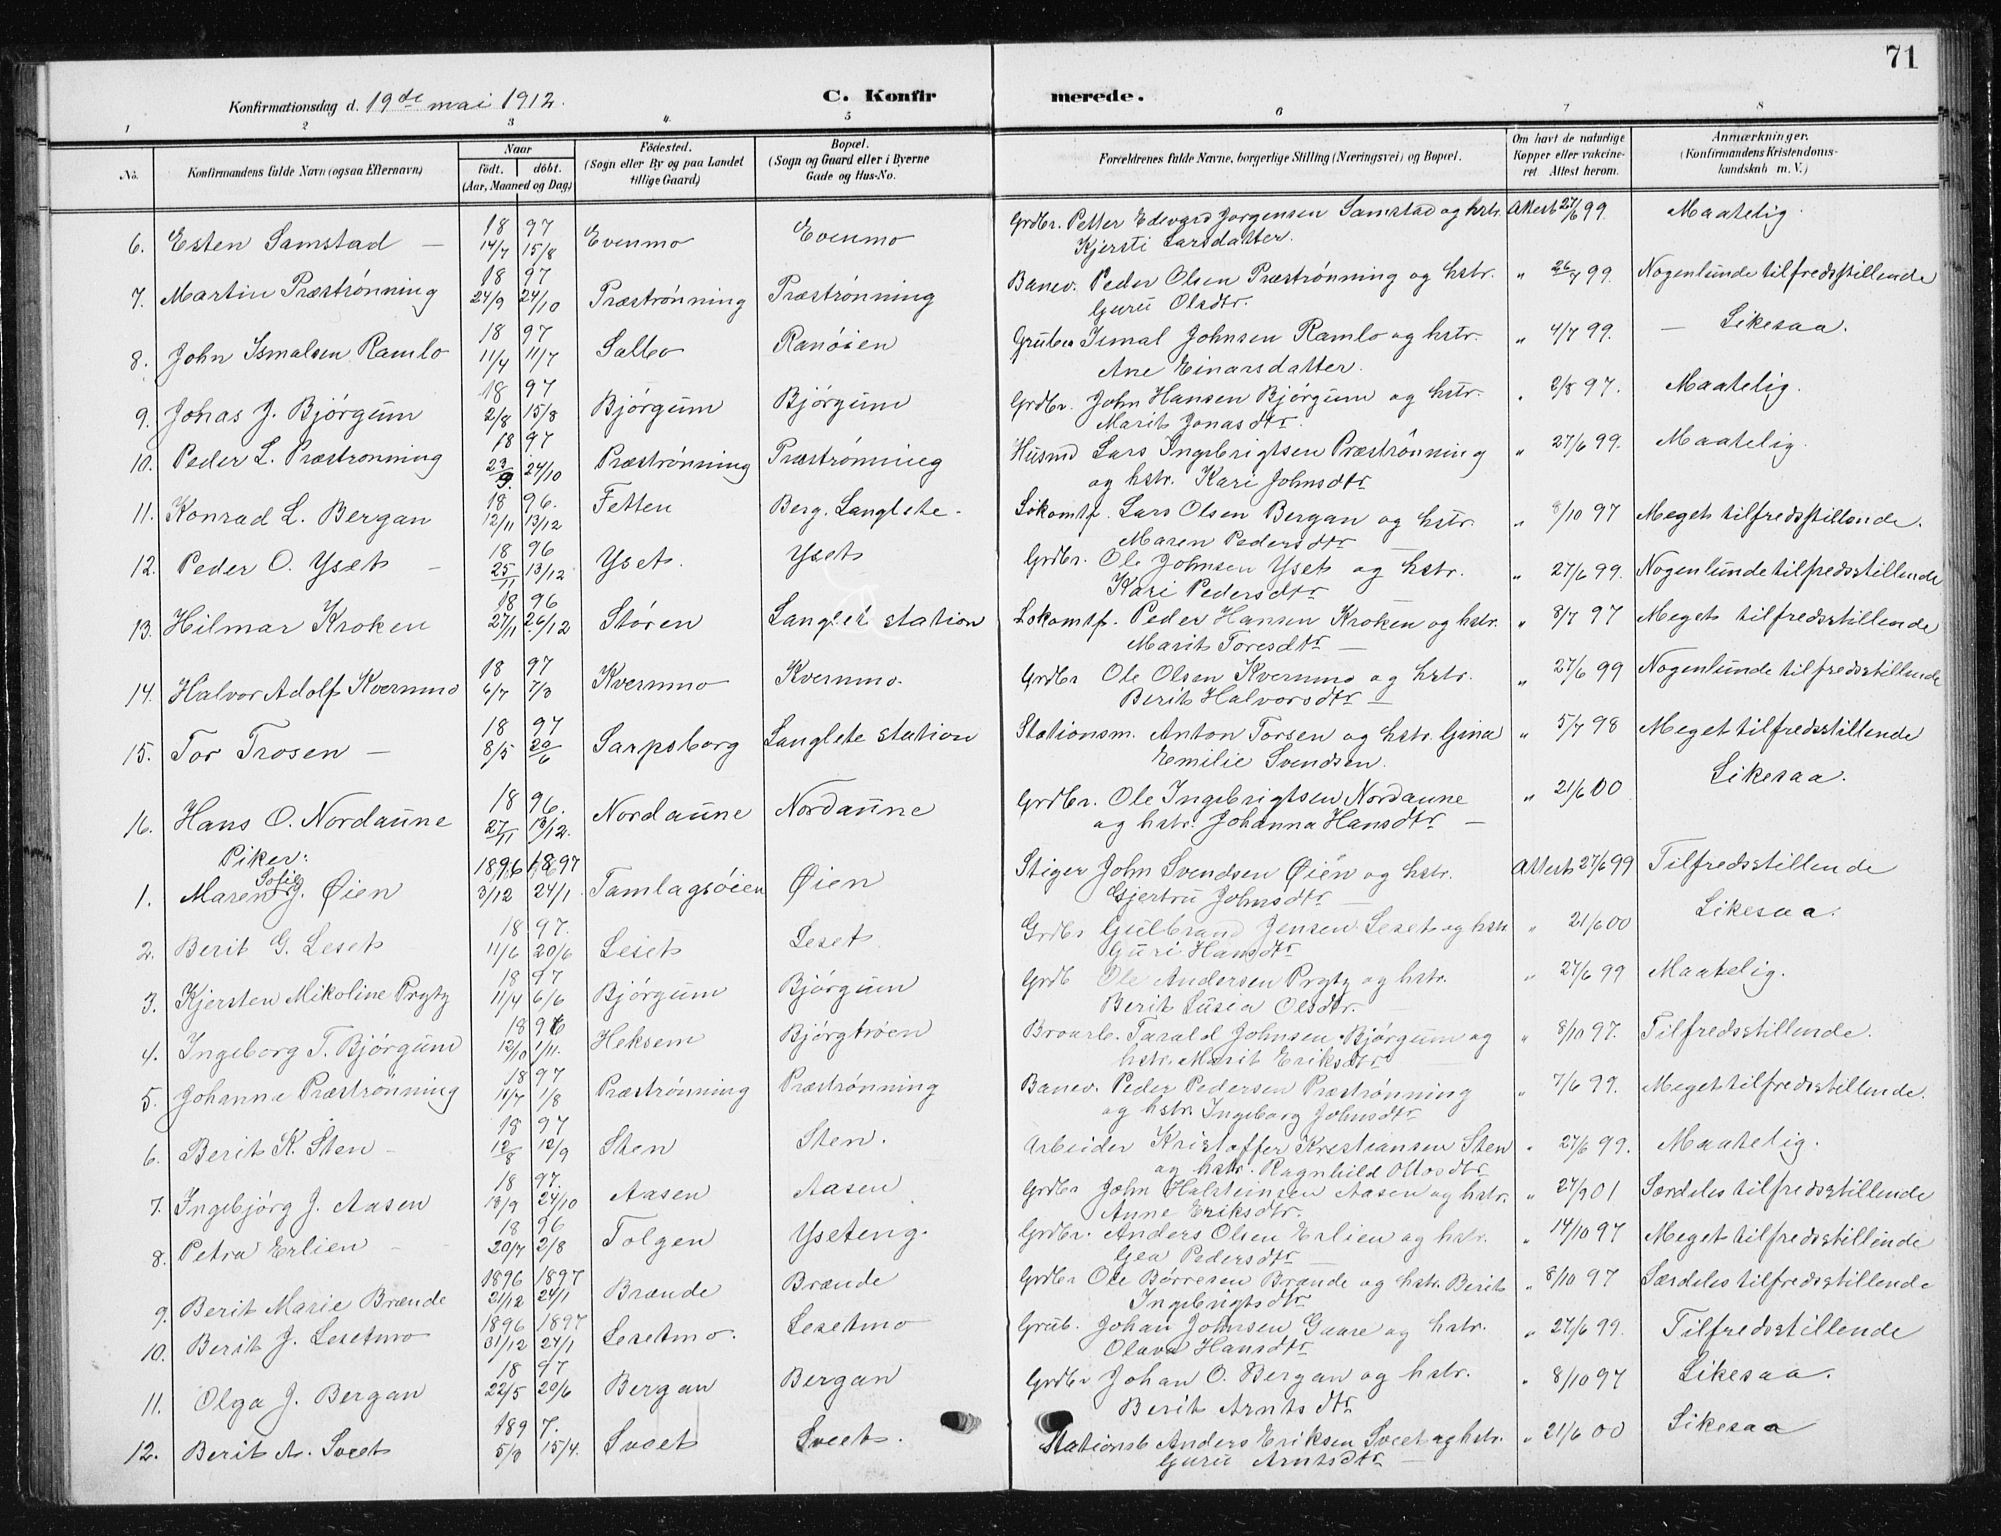 71
Konfirmationsdag d. 19de mai 1912. C. Konfirmerede.
1 2 3 4. 5 6 7 8
No. Konfirmandens fulde Navn (ogsaa Efternavn) Naar født. døbt. (Aar, Maaned og Dag) Fødested. (Sogn eller By og paa Landet tillige Gaard) Bopæl. (Sogn og Gaard eller i Byerne Gade og Hus-No. Forældrenes fulde Navne, borgerlige Stilling (Næringsvei) og Bopæl. Om havt de naturlige Kopper eller vakcineret. Attest herom. Anmærkninger. (Konfirmandens Kristendomskundskab m. V.)
6. Esten Samstad — 18 97 14/7 15/8 Evenmo Evenmo Grdbr. Petter Edevard Jørgensen Samstad og hstr. Attest 27/6 99. Maatelig.
Kjersti Larsdatter.
7. Martin Præstrønning 18 97 24/9 24/10 Præstrønning Præstrønning Banev. Peder Olsen Præstrønning og hstr. " 26/7 99. Nogenlunde tilfredsstillende
Guru Olsdtr.
8. John Ismalsen Ramlo 18 97 11/4 11/7 Salbo Ranøien Grubea Ismal Johnsen Ramlo og hstr. " 4/7 99. — Likesaa.
Ane Einarsdatter.
9. Johas J. Bjørgum 18 97 2/8 15/8 Bjørgum Bjørgum Grdbr. John Hansen Bjørgum og hstr. " 2/8 97. Maatelig.
Marit Jonasdtr.
10. Peder L. Præstrønning 18 97 23/9. 24/10 Præstrønning Præstrønning Husmd Lars Ingebrigtsen Præstrønning " 27/6 99. Maatelig.
og hstr. Kari Johnsdtr.
11. Konrad L. Bergan 18 96. 12/11 13/12 Fetten Berg. Langlete. Lokomtf. Lars Olsen Bergan og hstr. " 8/10 97 Meget tilfredsstillende.
Maren Pedersdtr —
12. Peder O. Yset — 18 96 25/11 13/12 Yset. Yset Grdbr. Ole Johnsen Yset og hstr. " 27/6 99. Nogenlunde tilfredsstillende
Kari Pedersdtr
13. Hilmar Kroken 18 96 27/11 26/12 Støren Langlet station Lokomtf. Peder Hansen Kroken og hstr. " 8/7 97 Meget tilfredsstillende
Marit Toresdtr —
14. Halvor Adolf Kvernmo 18 97 6/7 7/3 Kvernmo Kvernmo. Grdbr Ole Olsen Kvernmo og hstr. " 27/6 99 Nogenlunde tilfredsstillende
Berit Halvorsdtr —
15. Tor Trosen — 18 97 8/5 20/6 Sarpsborg Langlete station Stationsm. Anton Torsen og hstr. Gina " 5/7 98 Meget tilfredsstillende
Emilie Svendsen.
16. Hans O. Nordaune 18 96. 27/11 13/12. Nordaune Nordaune Grdbr. Ole Ingebrigtsen Nordaune " 21/6 00 Likesaa.
og hstr. Johanna Hansdtr —
Piker:
1. Maren Sofie J. Øien 1896 1897 3/12 24/1 Tamlagsøien Øien Stiger John Svendsen Øien og hstr. Attest 27/6 99 Tilfredsstillende
Gjertru Johnsdtr —
2. Berit G. Leset 18 97. 11/6 20/6 Leset Leset Grdbr Gulbrand Jensen Leset og hstr " 21/6 00 Likesaa.
Guri Hansdtr
3. Kjersten Mikoline Prytz 18 97 11/4 6/6 Bjørgum Bjørgum Grdb Ole Andersen Prytz og hstr. " 27/6 99 Maatelig.
Berit Lusia Olsdtr.
4. Ingeborg T. Bjørgum 18 96 12/10 1/11. Heksem Bjørgtrøen Broarb. Tarald Johnsen Bjørgum og " 8/10 97. Tilfredsstillende.
hstr. Marit Eriksdtr
5. Johanne Præstrønning 18 97 11/7 1/8 Præstrønning Præstrønning Banev. Peder Pedersen Præstrønning " 7/6 99. Meget tilfredsstillende.
og hstr. Ingeborg Johnsdtr
6. Berit K. Sten — 18 97 12/8 12/9 Sten Sten. Arbeider Kristoffer Kristiansen Sten " 27/6 99. Maatelig.
og hstr. Ragnhild Ottosdtr
7. Ingebjørg J. Aasen 18 97. 13/9 24/10 Aasen Aasen Grdbr John Halsteinsen Aasen og hstr. " 27/9 01 Særdeles tilfredsstillende
Anne Eriksdtr.
8. Petra Erlien — 18 96 20/7 2/8 Tolgen Yseteng. Grdbr. Anders Olsen Erlien og hstr. " 14/10 97 Meget tilfredsstillende
Gea Pedersdtr —
9. Berit Marie Brænde 1896 1897 21/12 24/1 Brænde Brænde Grdbr Ole Børresen Brænde og hstr. Berit " 8/10 97 Særdeles tilfredsstillende
Ingebrigtsdtr
10. Berit J. Lesetmo 1896 1897 31/12 24/1 Lesetmo. Lesetmo Grub. Johan Johnsen Gaare og hstr. " 27/6 99. Tilfredsstillende
Olava Hansdtr
11. Olga J. Bergan 18 97 22/5 20/6 Bergan Bergan Grdbr Johan O. Bergan og hstr. " 8/10 97 Likesaa.
Berit Arntsdtr
12. Berit A. Sveet 1897. 5/3 15/4. Sveet Sveet. Stationsb Anders Eriksen Sveet og hstr. " 21/6 00 Likesaa
Guru Arntsdtr —